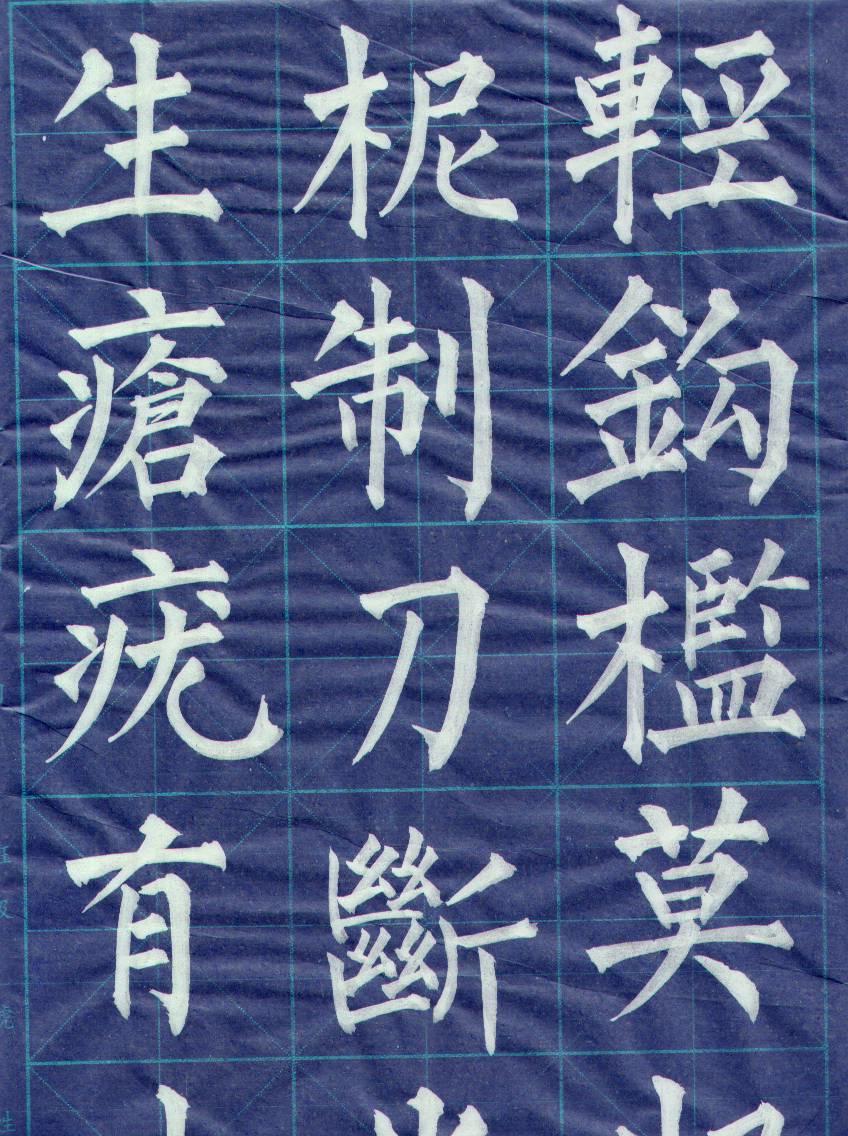 輕鈎檻莫
柅制刀斷
生瘡疣有